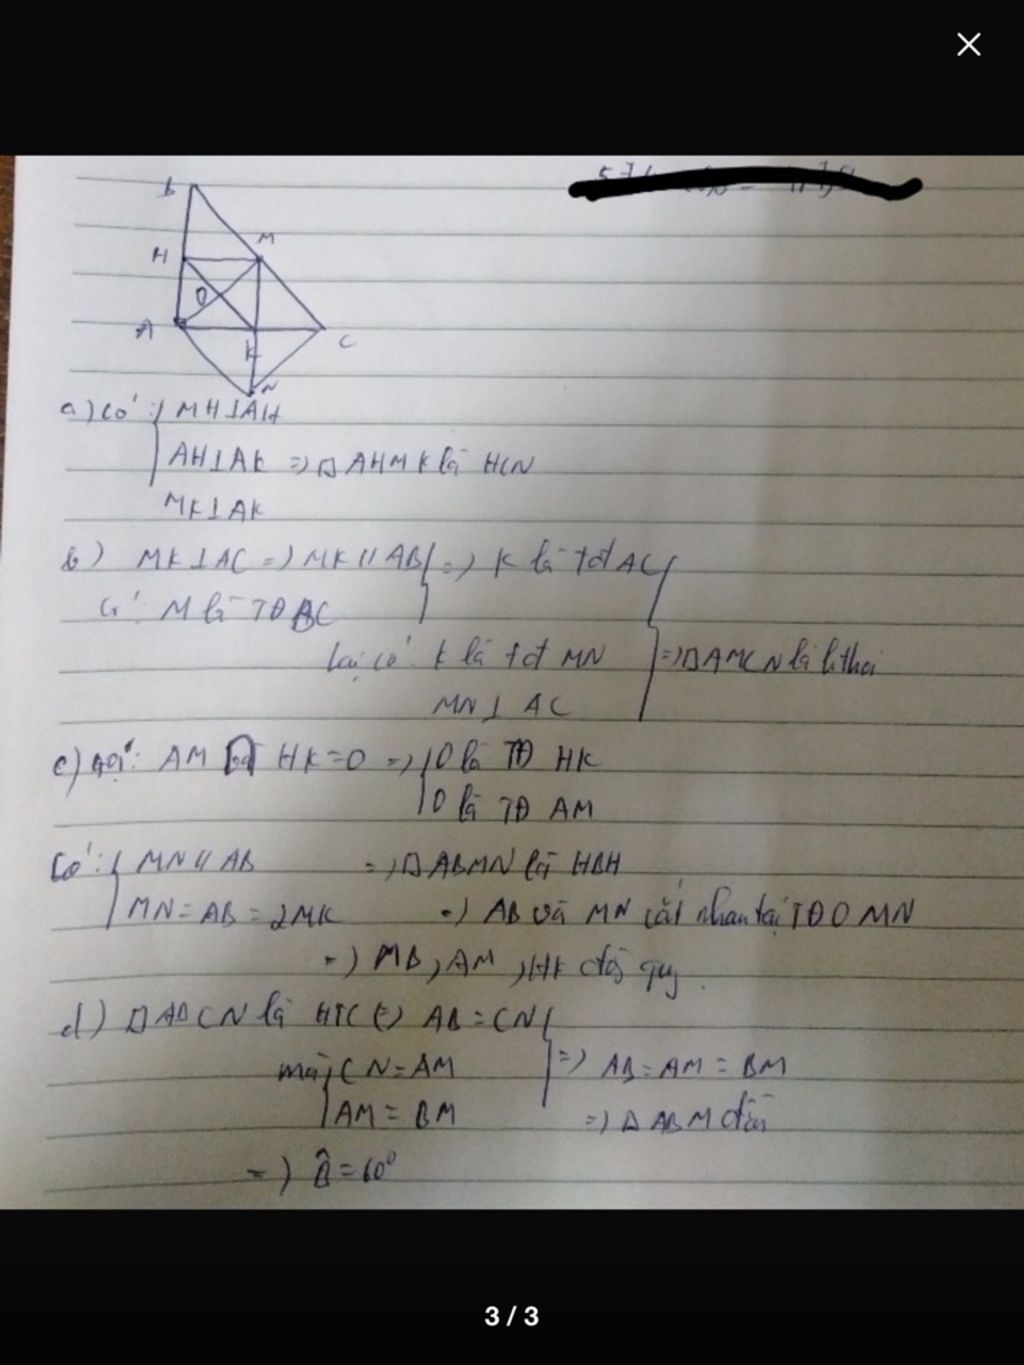 B
H M
O
A K C
N
a) Có: { MH⊥AH
AH⊥AK => □ AHMK là HCN
MK⊥AK
b) MK⊥AC => MK // AB } => K là tđ AC
Có: M là TĐ BC
Lại có: K là tđ MN => □ AMCN là h.thoi
MN⊥ AC
c) Gọi: AM HK = O => { O là TĐ HK
O là TĐ AM
Có: { MN // AB => □ ABMN là HBH
MN = AB = 2MK => AB và MN cắt nhau tại TĐ O MN
=) MB, AM, HK đồng quy.
d) □ ABCN là HTC (=) AB = CN
mà { CN = AM => AB = AM = BM
AM = BM => Δ ABM đều
=) B̂ = 60°
3 / 3